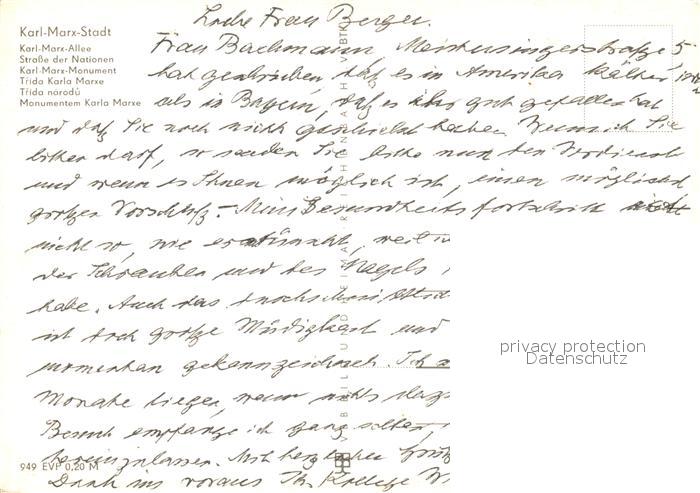 Karl-Marx-Stadt
Karl-Marx-Allee
Straße der Nationen
Karl-Marx-Monument
Třída Karla Marxe
Třída národů
Monumentem Karla Marxe
Liebe Frau Berger.
Frau Bachmann, Meistersingerstraße 5
hat geschrieben daß es in Amerika kälter
als in Bayern, daß es ihr gut gefallen hat
und daß Sie noch nicht geschickt haben. Wenn ich Sie
bitten darf, so senden Sie bitte nun den Verdienst
und wenn es Ihnen möglich ist, einen möglichst
großen Vorschuß. – Mein Gesundheitsfortschritt
nicht so, wie erwünscht, weil
der Schrauben und des Nagels
habe. Auch das
ist doch große Müdigkeit und
momentan gekennzeichnet. Ich
Monate liegen, wenn nichts
Besuch empfange ich ganz selten,
hereinzulassen. Mit herzlichen
Dank im voraus Ihr Kollege
949 EVP 0,20 M
privacy protection
Datenschutz